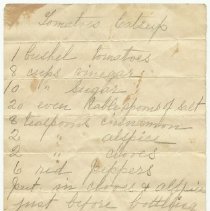 Tomatoes Catsup
1 Bushel Tomatoes
8 cups vinegar
10 " sugar
20 even tablespoons of salt
8 teaspoons cinnamon
2 " allspice
2 " cloves
6 red peppers
put in cloves & allspice
just before bottling